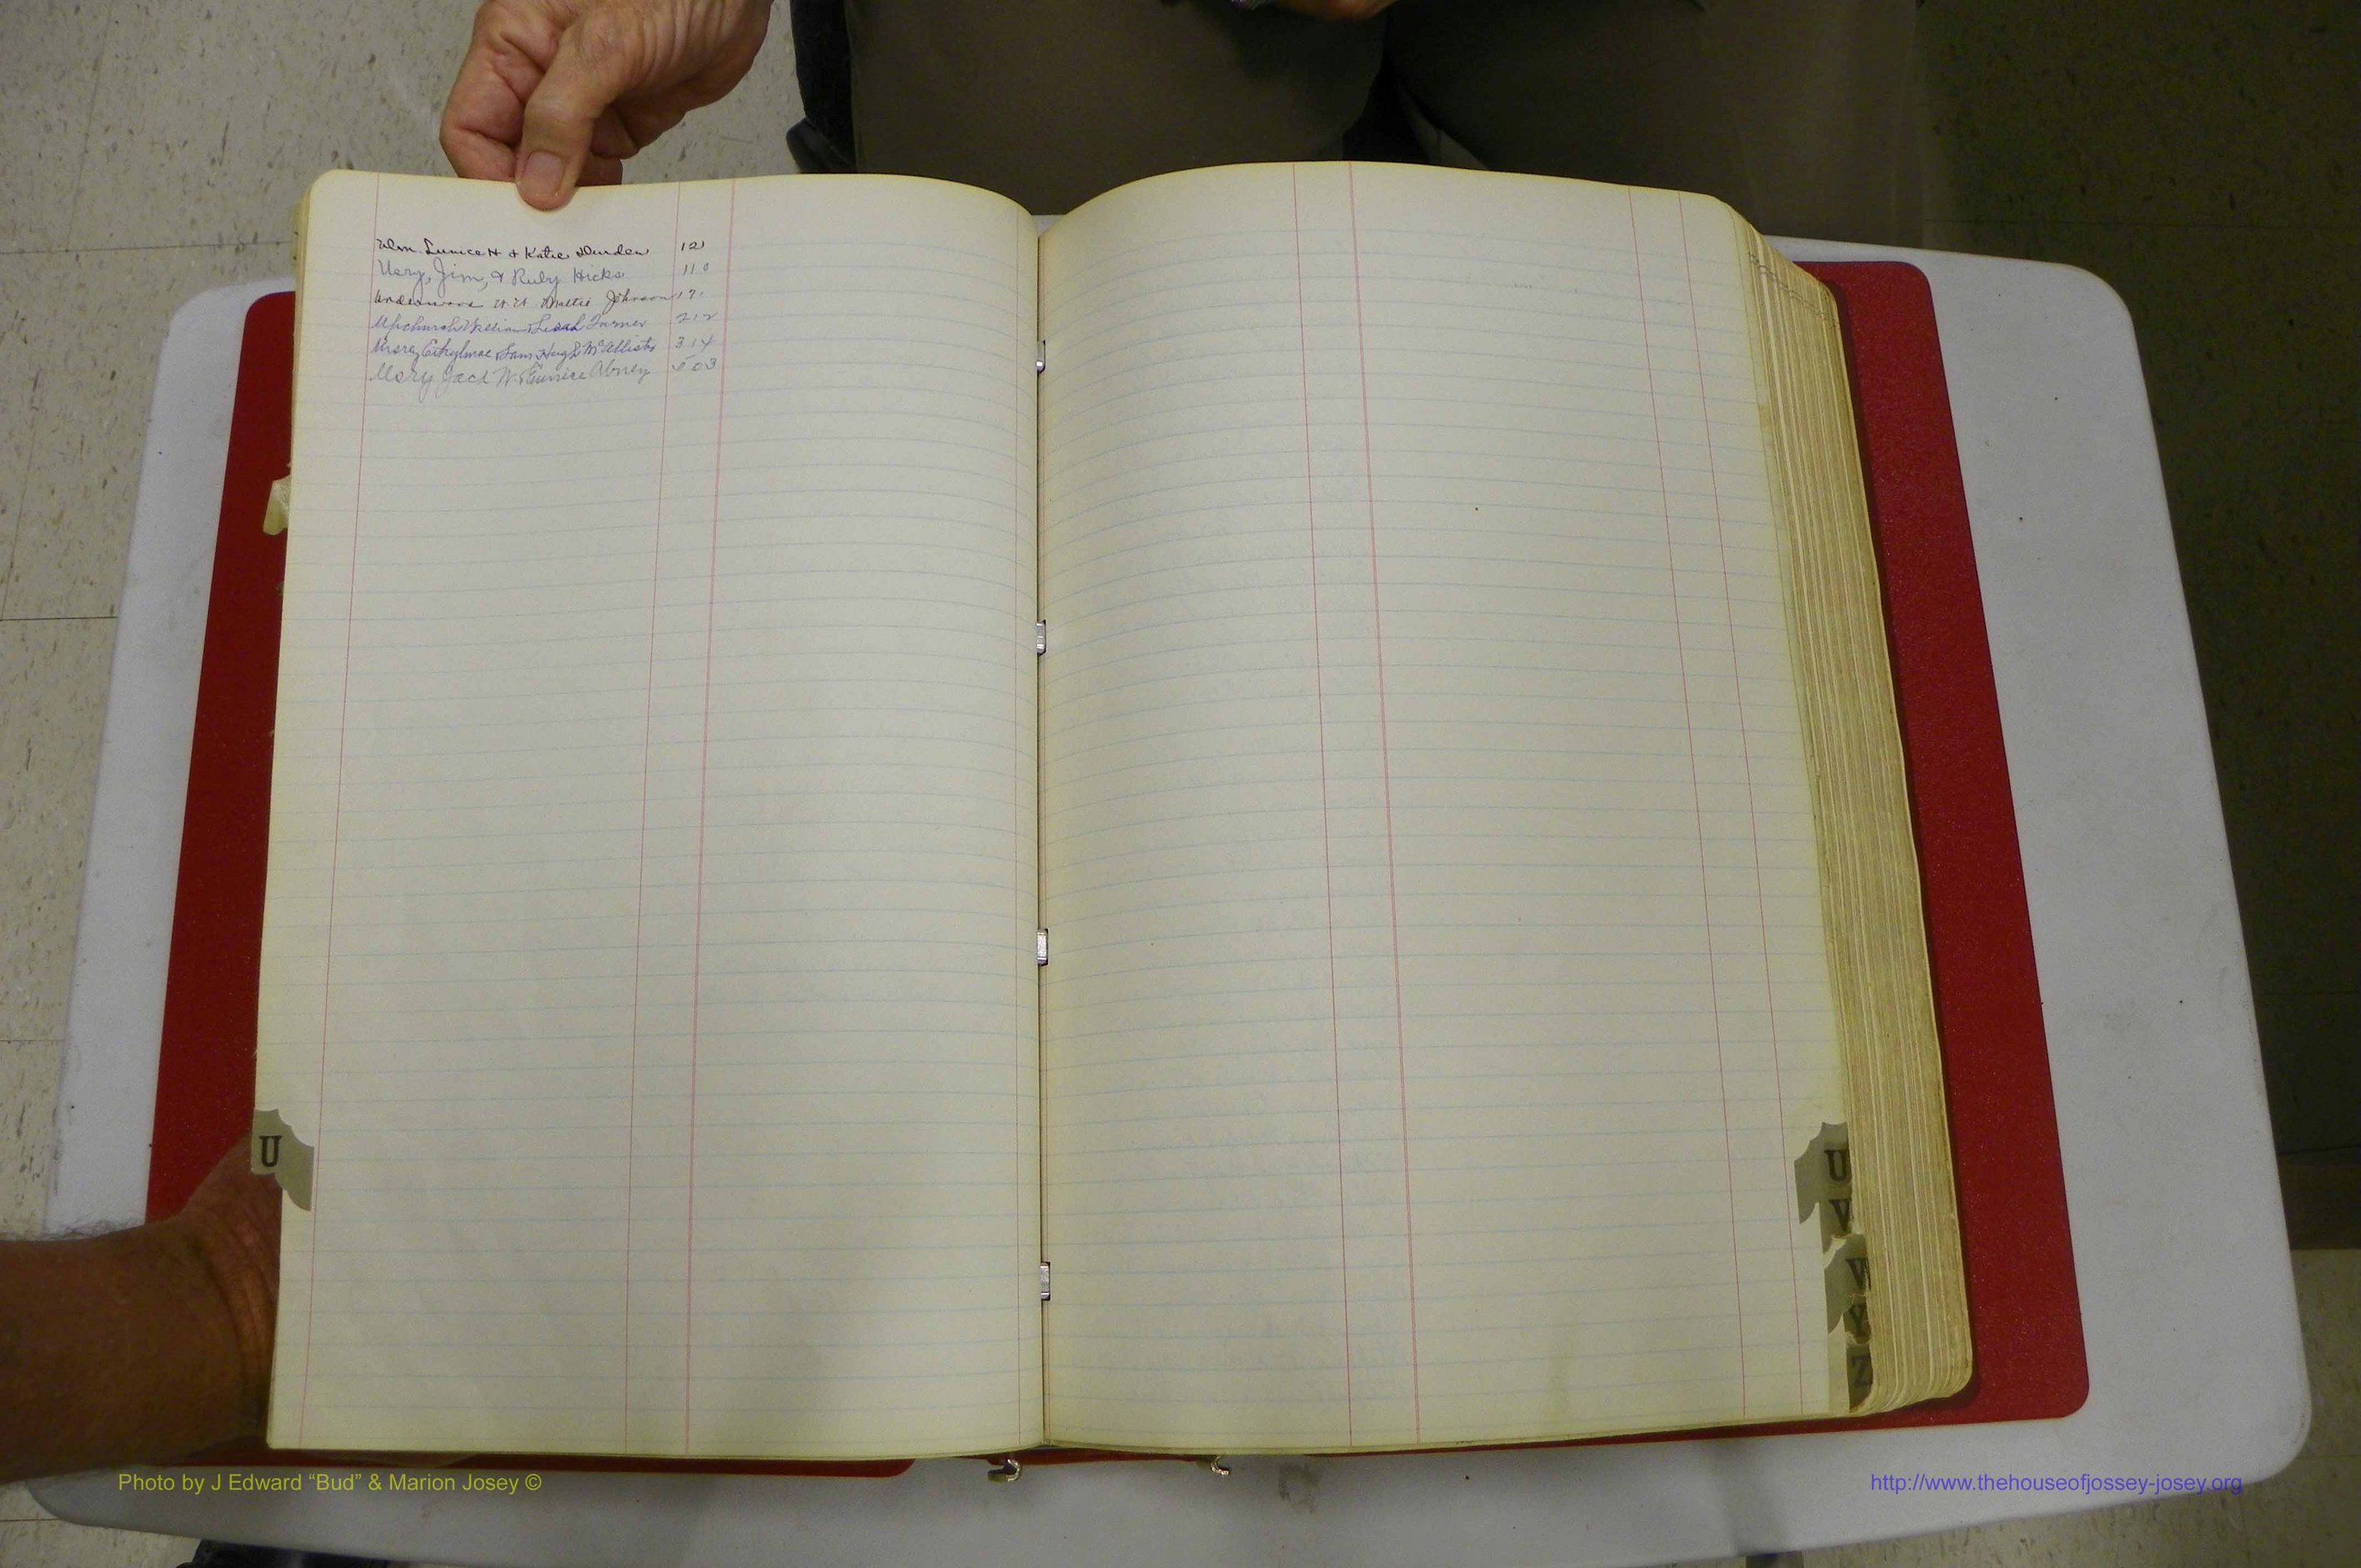 Ulm. Eunice H & Katie Durden 121
Usry, Jim, & Ruby Hicks 110
Underwood W.H. Mattie Johnson 17
Upchurch William & Leah Turner 212
Ursrey Ethylmae & Sam Hugh McAllister 314
Usry Jack W. & Eunice Abney 503
U
U
V
W
Y
Z
Photo by J Edward “Bud” & Marion Josey ©
http://www.thehouseofjossey-josey.org